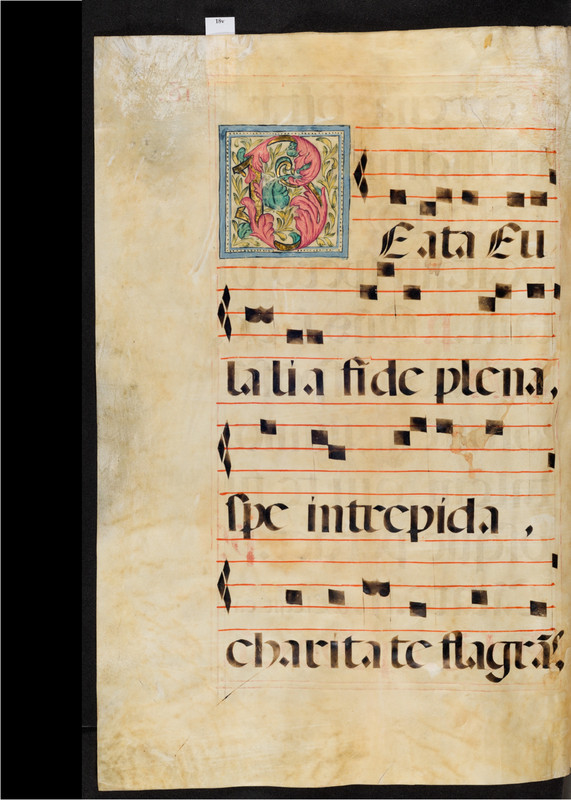 18v
BEata Eu
la li a fi de plena,
spe intrepida ,
charita te flagrãs,